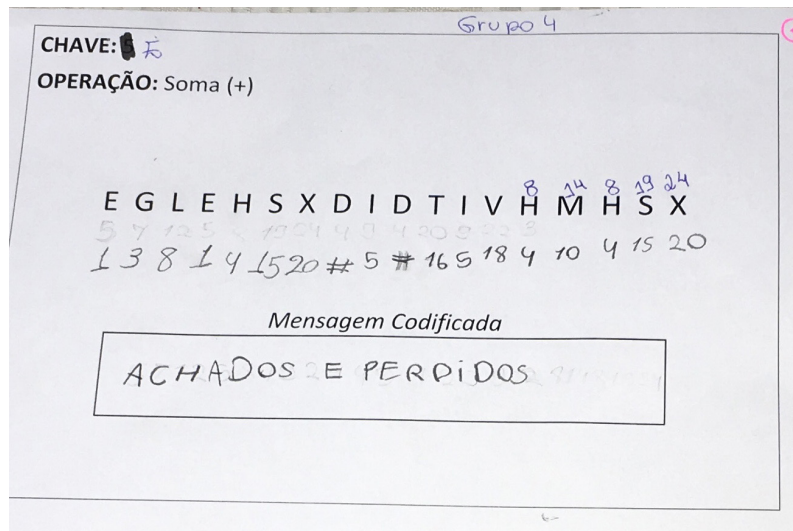 Grupo 4
CHAVE:
OPERAÇÃO: Soma (+)
8 14 8 19 24
E G L E H S X D I D T I V H M H S X
1 3 8 1 4 15 20 # 5 # 16 5 18 4 10 4 15 20
Mensagem Codificada
ACHADOS E PERDIDOS